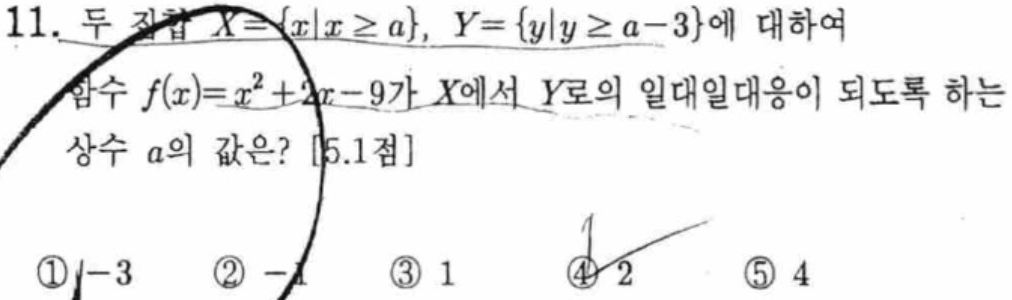 11. 두 집합 X={x|x ≥ a}, Y={y|y ≥ a-3}에 대하여
함수 f(x)=x²+2x-9가 X에서 Y로의 일대일대응이 되도록 하는
상수 a의 값은? [5.1점]
① -3 ② -1 ③ 1 ④ 2 ⑤ 4